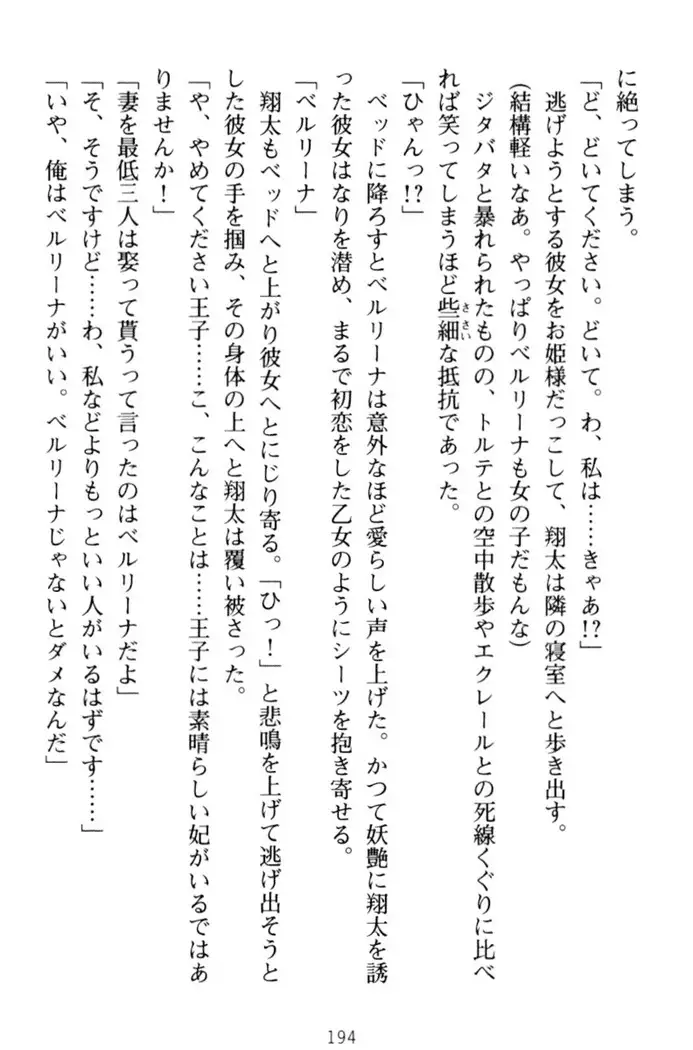 に絶ってしまう。
「ど、どいてください。どいて。わ、私は……きゃあ!?」
　逃げようとする彼女をお姫様だっこして、翔太は隣の寝室へと歩き出す。
(結構軽いなぁ。やっぱりベルリーナも女の子だもんな)
　ジタバタと暴れられたものの、トルテとの空中散歩やエクレールとの死線くぐりに比べ
れば笑ってしまうほど些細な抵抗であった。
ささい
「ひゃんっ!?」
　ベッドに降ろすとベルリーナは意外なほど愛らしい声を上げた。かつて妖艶に翔太を誘
った彼女はなりを潜め、まるで初恋をした乙女のようにシーツを抱き寄せる。
「ベルリーナ」
　翔太もベッドへと上がり彼女へとにじり寄る。「ひっ！」と悲鳴を上げて逃げ出そうと
した彼女の手を掴み、その身体の上へと翔太は覆い被さった。
「や、やめてください王子……こ、こんなことは……王子には素晴らしい妃がいるではあ
りませんか！」
「妻を最低三人は娶って貰うって言ったのはベルリーナだよ」
「そ、そうですけど……わ、私などよりもっといい人がいるはずです……」
「いや、俺はベルリーナがいい。ベルリーナじゃないとダメなんだ」
194